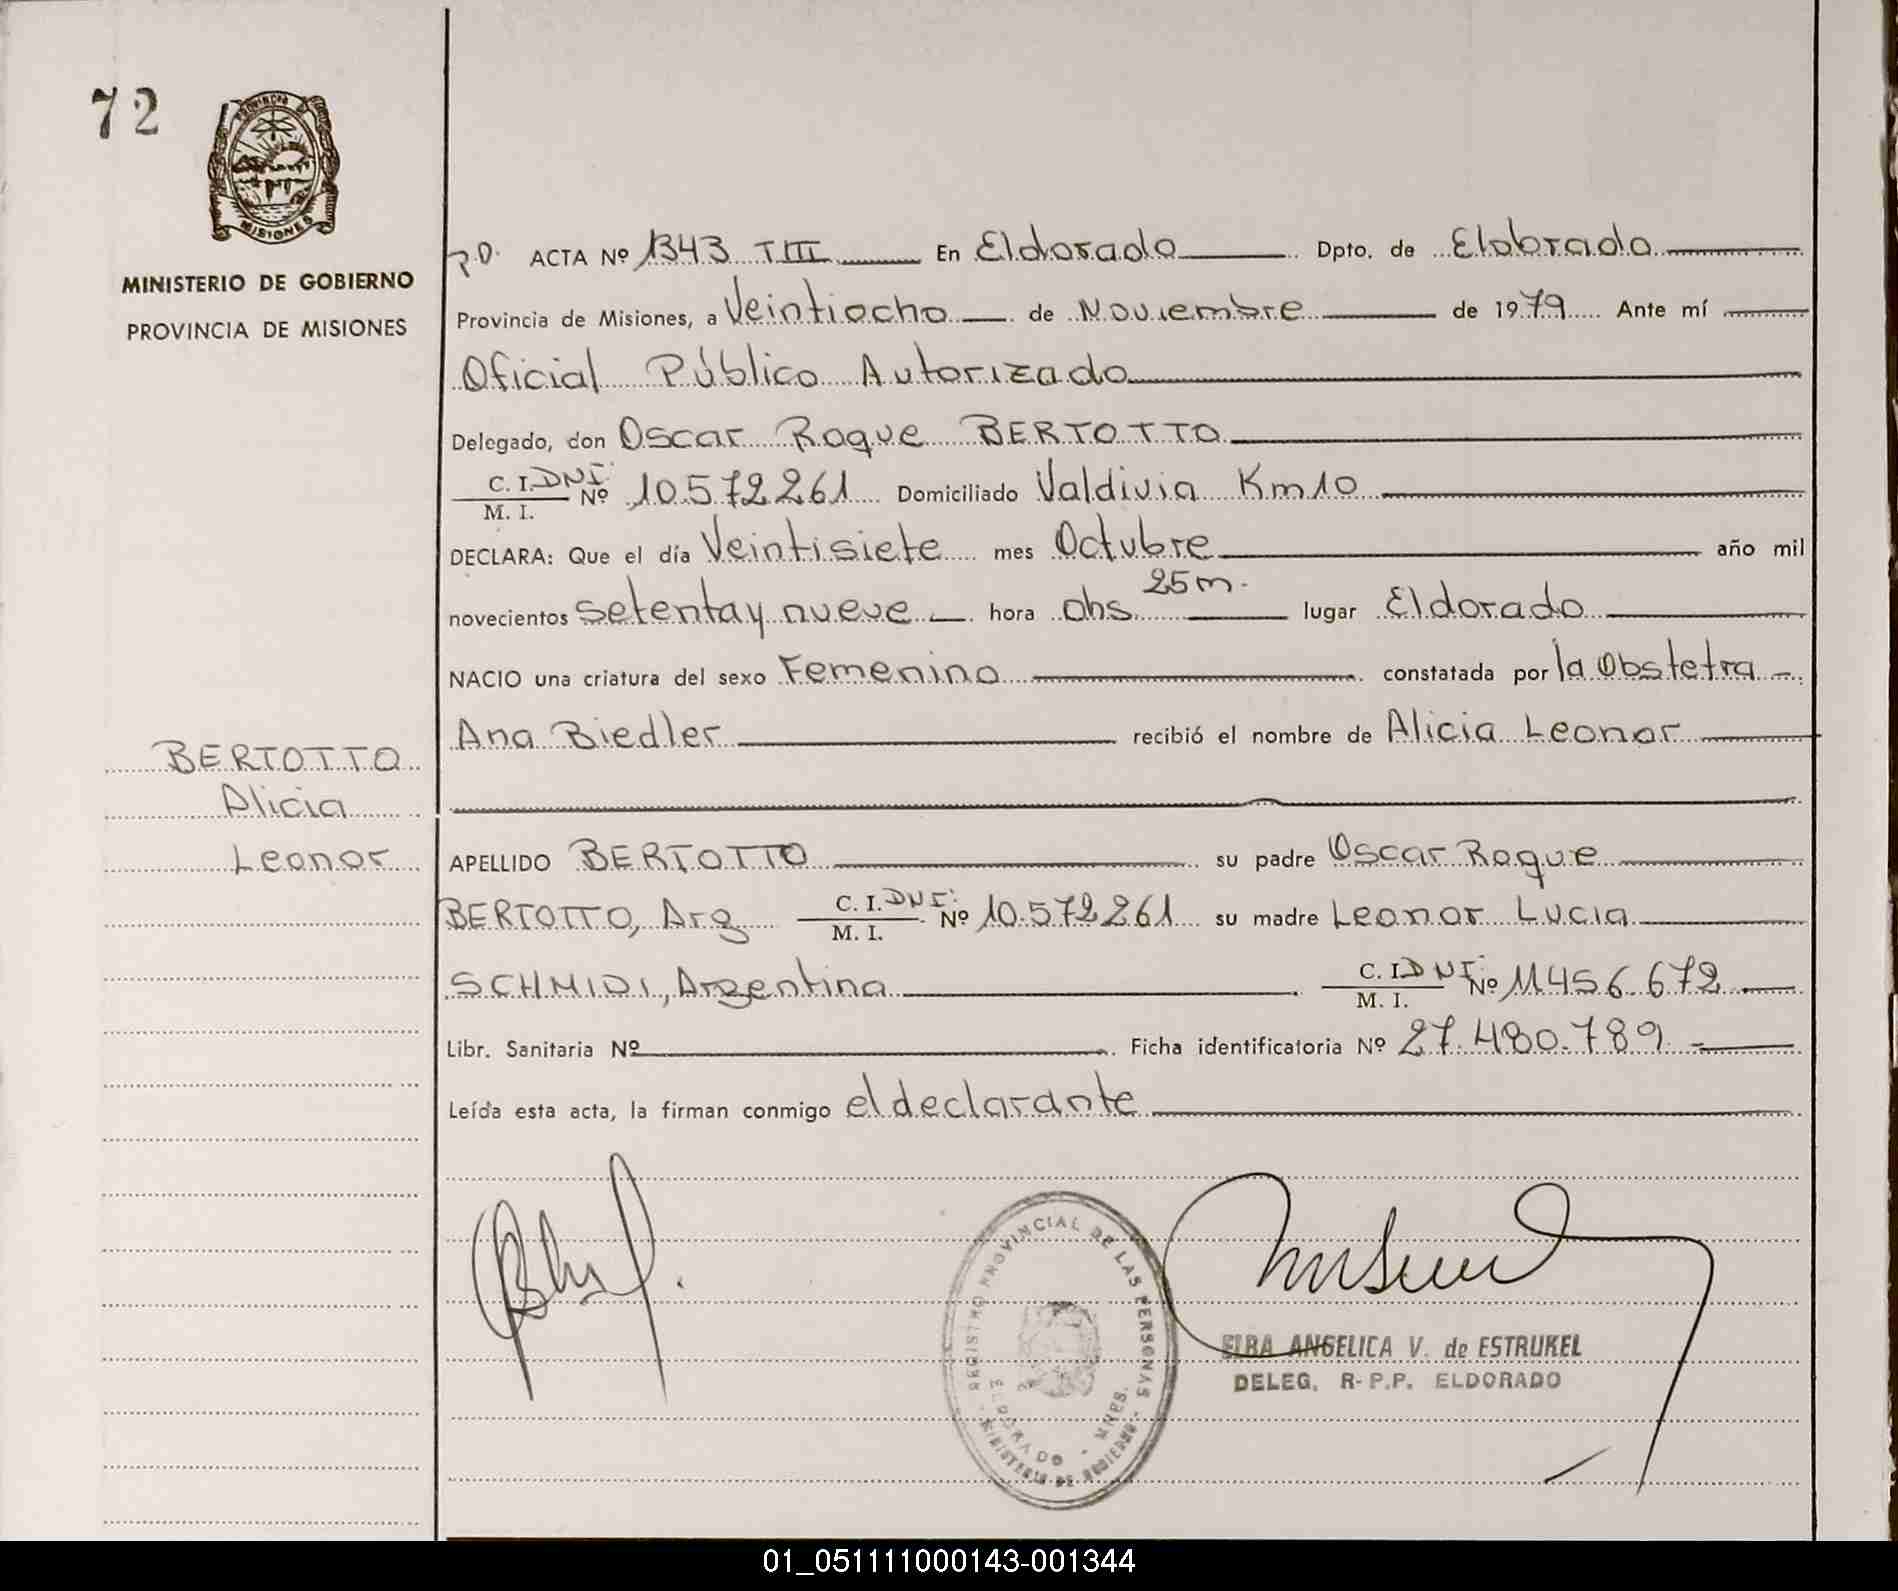 72
PROVINCIA DE
MISIONES
MINISTERIO DE GOBIERNO
PROVINCIA DE MISIONES
BERTOTTO
Alicia
Leonor
P.D. ACTA Nº 1343 TIII En Eldorado Dpto. de Eldorado
Provincia de Misiones, a Veintiocho de Noviembre de 1979 Ante mí
Oficial Público Autorizado
Delegado, don Oscar Roque BERTOTTO
C. I. DNI M. I. Nº 10.572261 Domiciliado Valdivia Km10
DECLARA: Que el día Veintisiete mes Octubre año mil
novecientos setenta y nueve hora 0hs 25m. lugar Eldorado
NACIO una criatura del sexo Femenino constatada por la Obstetra
Ana Biedler recibió el nombre de Alicia Leonor
APELLIDO BERTOTTO su padre Oscar Roque
BERTOTTO, Arg C. I. DNI M. I. Nº 10.572261 su madre Leonor Lucia
SCHMIDT, Argentina C. I. DNI M. I. Nº 11456.672
Libr. Sanitaria Nº Ficha identificatoria Nº 27.480.789
Leída esta acta, la firman conmigo el declarante
REGISTRO PROVINCIAL DE LAS PERSONAS
ELDORADO - MNES.
MINISTERIO DE GOBIERNO
ELBA ANGELICA V. de ESTRUKEL
DELEG. R-P.P. ELDORADO
01_051111000143-001344